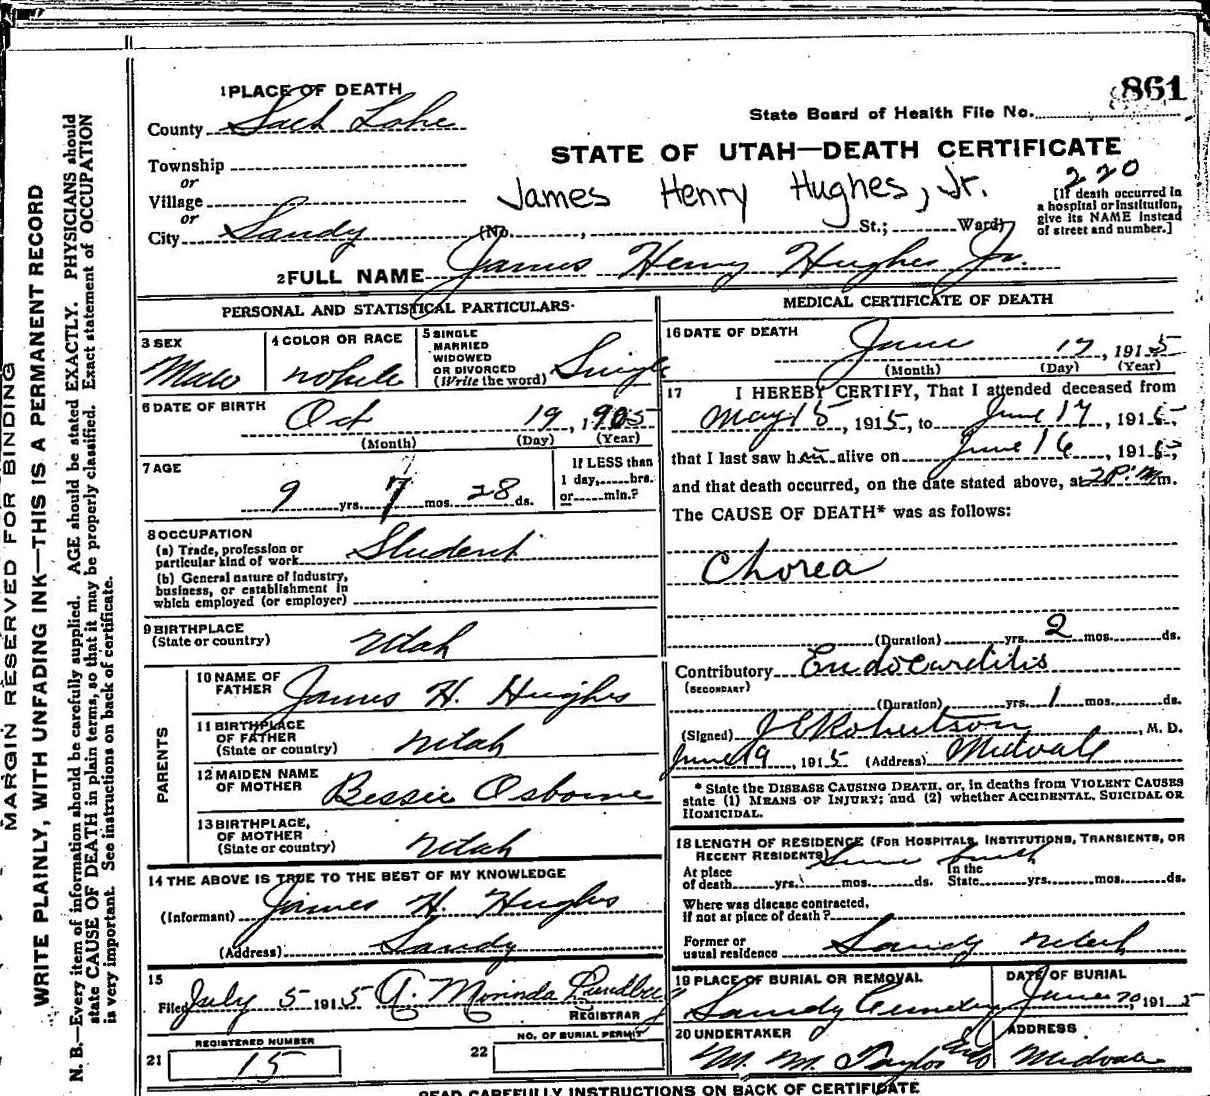 861
State Board of Health File No.
1 PLACE OF DEATH
County Salt Lake
STATE OF UTAH—DEATH CERTIFICATE
Township
or
Village
or
City Sandy (No. , St.; Ward)
James Henry Hughes, Jr.
220
[If death occurred in
a hospital or institution,
give its NAME instead
of street and number.]
2 FULL NAME James Henry Hughes Jr.
PERSONAL AND STATISTICAL PARTICULARS
3 SEX
Male
4 COLOR OR RACE
white
5 SINGLE
MARRIED
WIDOWED
OR DIVORCED
(Write the word)
Single
6 DATE OF BIRTH
Oct 19, 1905
(Month) (Day) (Year)
7 AGE
9 yrs. 7 mos. 28 ds.
If LESS than
1 day, hrs.
or min.?
8 OCCUPATION
(a) Trade, profession or
particular kind of work Student
(b) General nature of Industry,
business, or establishment in
which employed (or employer)
9 BIRTHPLACE
(State or country) Utah
PARENTS
10 NAME OF
FATHER James H. Hughes
11 BIRTHPLACE
OF FATHER
(State or country) Utah
12 MAIDEN NAME
OF MOTHER Bessie Osborne
13 BIRTHPLACE,
OF MOTHER
(State or country) Utah
14 THE ABOVE IS TRUE TO THE BEST OF MY KNOWLEDGE
(Informant) James H. Hughes
(Address) Sandy
15
Filed July 5 1915 A. Morinda Lundberg
REGISTRAR
REGISTERED NUMBER
21 15
NO. OF BURIAL PERMIT
22
MEDICAL CERTIFICATE OF DEATH
16 DATE OF DEATH
June 17, 1915
(Month) (Day) (Year)
17 I HEREBY CERTIFY, That I attended deceased from
May 15, 1915, to June 17, 1915,
that I last saw him alive on June 16, 1915,
and that death occurred, on the date stated above, at 2 P. M m.
The CAUSE OF DEATH* was as follows:
Chorea
(Duration) yrs. 2 mos. ds.
Contributory Endocarditis
(SECONDARY)
(Duration) yrs. 1 mos. ds.
(Signed) J E Robertson, M. D.
June 19, 1915 (Address) Midvale
* State the DISEASE CAUSING DEATH, or, in deaths from VIOLENT CAUSES
state (1) MEANS OF INJURY; and (2) whether ACCIDENTAL, SUICIDAL OR
HOMICIDAL.
18 LENGTH OF RESIDENCE (FOR HOSPITALS, INSTITUTIONS, TRANSIENTS, OR
RECENT RESIDENTS) Since birth
At place In the
of death yrs. mos. ds. State yrs. mos. ds.
Where was disease contracted,
if not at place of death?
Former or
usual residence Sandy Utah
19 PLACE OF BURIAL OR REMOVAL
Sandy Cemetery
DATE OF BURIAL
June 20, 1915
20 UNDERTAKER
M. M. Taylor
ADDRESS
Midvale
READ CAREFULLY INSTRUCTIONS ON BACK OF CERTIFICATE
MARGIN RESERVED FOR BINDING
WRITE PLAINLY, WITH UNFADING INK—THIS IS A PERMANENT RECORD
N. B.—Every item of information should be carefully supplied. AGE should be stated EXACTLY. PHYSICIANS should
state CAUSE OF DEATH in plain terms, so that it may be properly classified. Exact statement of OCCUPATION
is very important. See instructions on back of certificate.